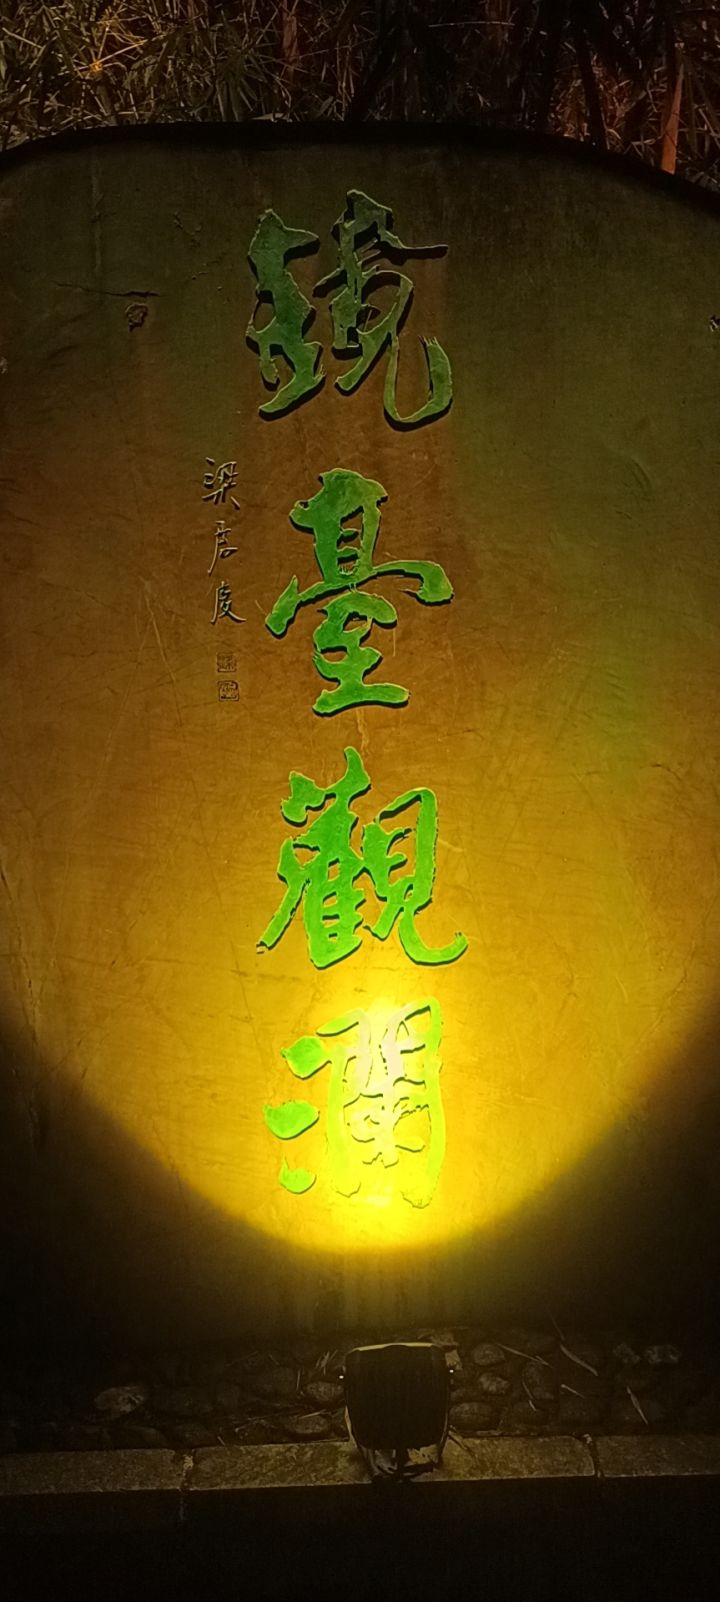 鏡臺觀瀾
梁君度